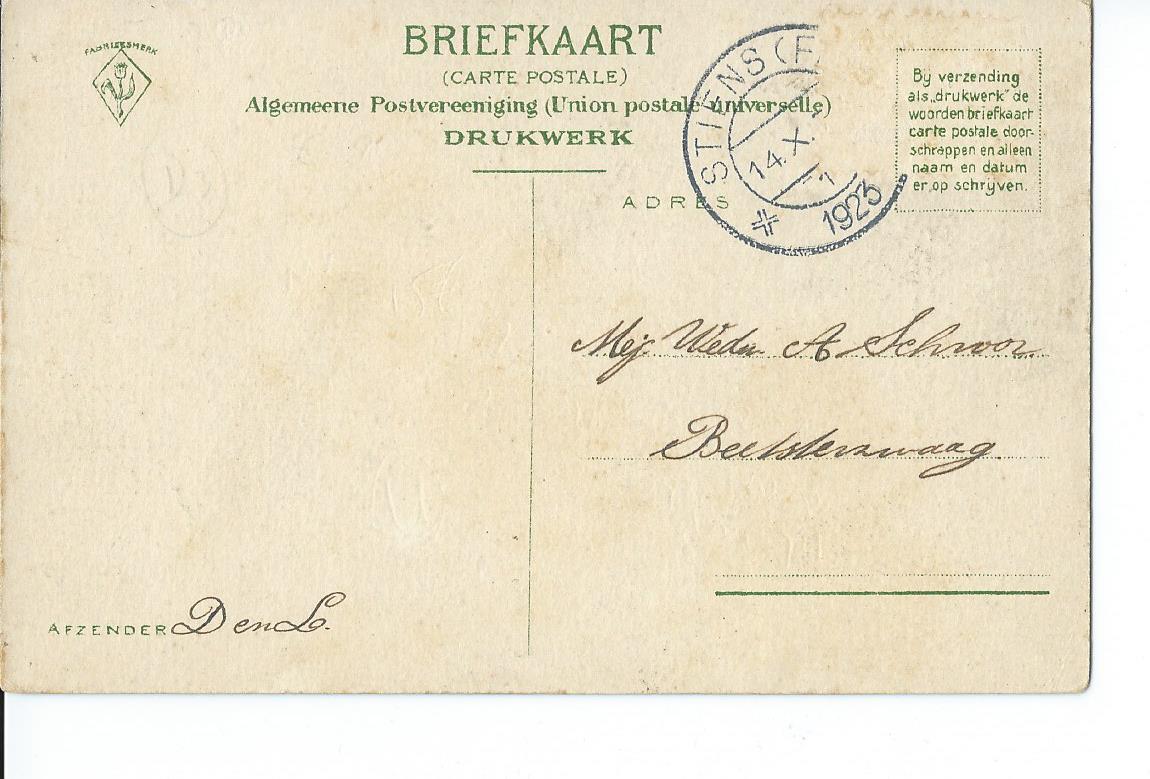 FABRIEKSMERK
BRIEFKAART
(CARTE POSTALE)
Algemeene Postvereeniging (Union postale universelle)
DRUKWERK
STIENS (F
14.X.
1923
By verzending
als „drukwerk" de
woorden briefkaart
carte postale door-
schrappen en alleen
naam en datum
er op schryven.
ADRES
Mej. Wedu A Schroor
Beetsterzwaag
AFZENDER D en L.